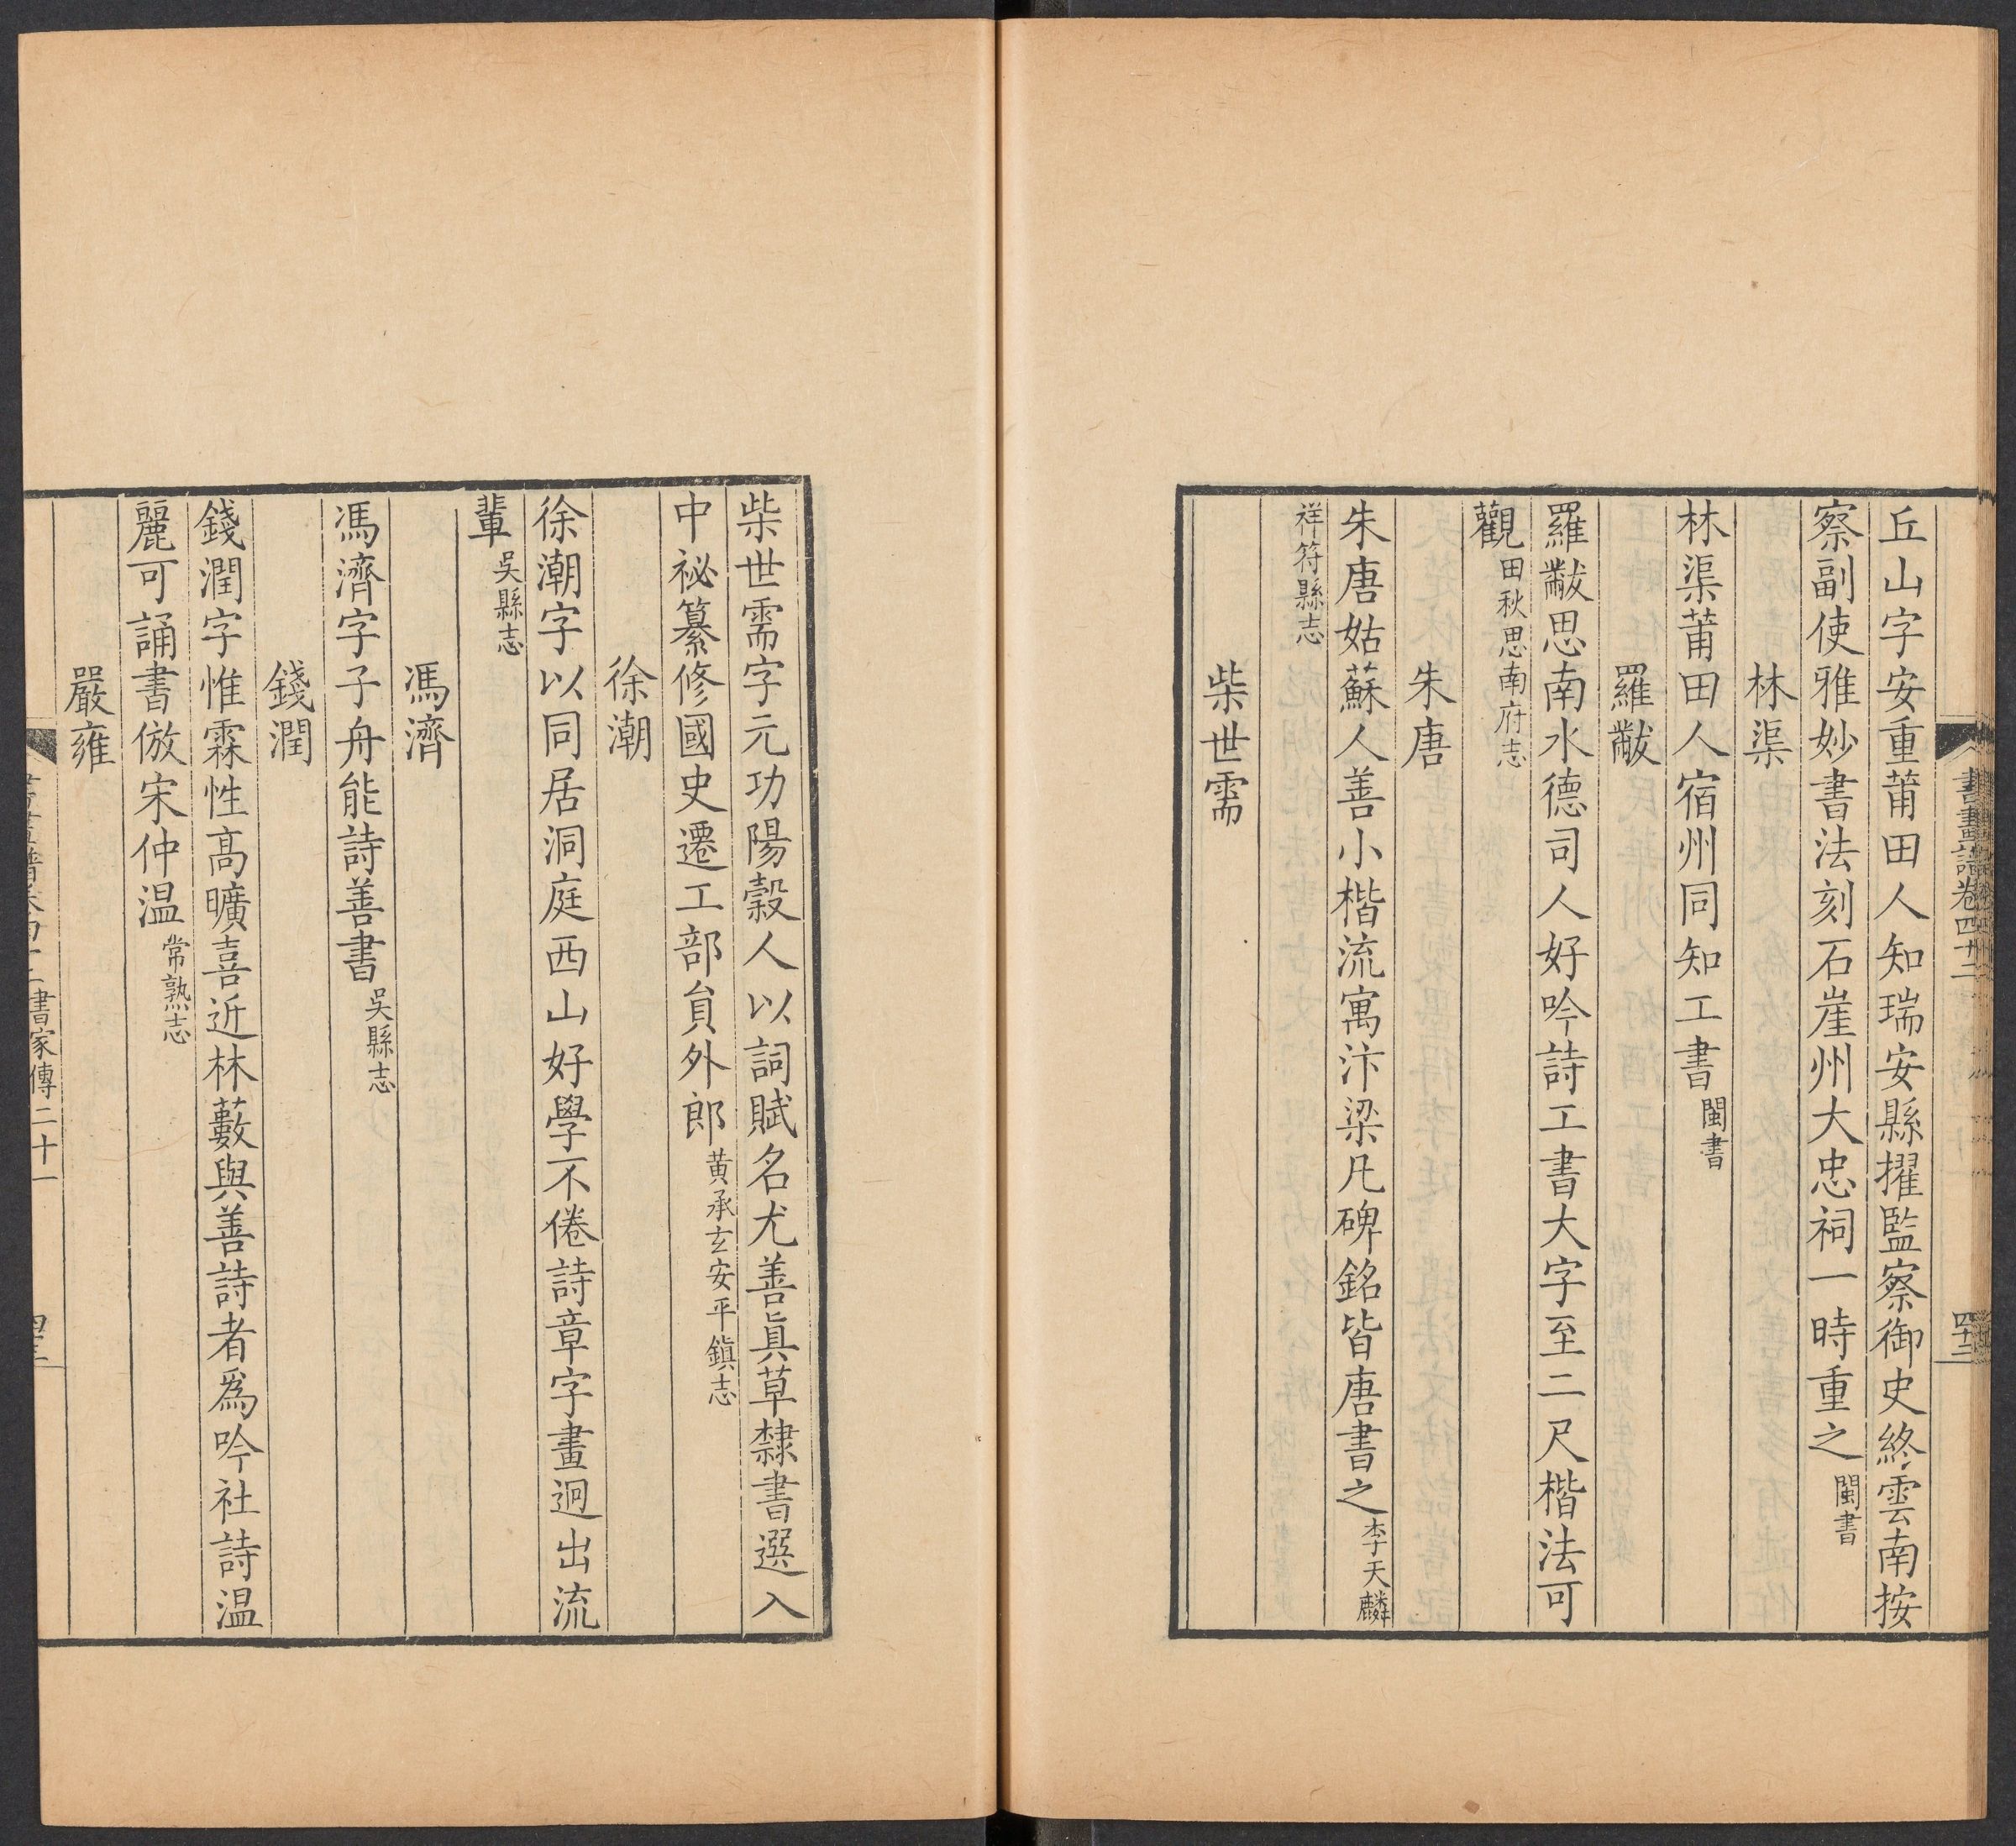 書畫譜卷四十二
四十二
丘山字安重莆田人知瑞安縣擢監察御史終雲南按
察副使雅妙書法刻石崖州大忠祠一時重之閩書
林渠
林渠莆田人宿州同知工書閩書
羅黻
羅黻思南水德司人好吟詩工書大字至二尺楷法可
觀田秋思南府志
朱唐
朱唐姑蘇人善小楷流寓汴梁凡碑銘皆唐書之李天麟
祥符縣志
柴世需
柴世需字元功陽穀人以詞賦名尤善眞草隸書選入
中祕纂修國史遷工部貟外郎黄承玄安平鎮志
徐潮
徐潮字以同居洞庭西山好學不倦詩章字畫迥出流
輩吳縣志
馮濟
馮濟字子舟能詩善書吳縣志
錢潤
錢潤字惟霖性高曠喜近林藪與善詩者爲吟社詩温
麗可誦書倣宋仲温常熟志
嚴雍
書家傳二十一